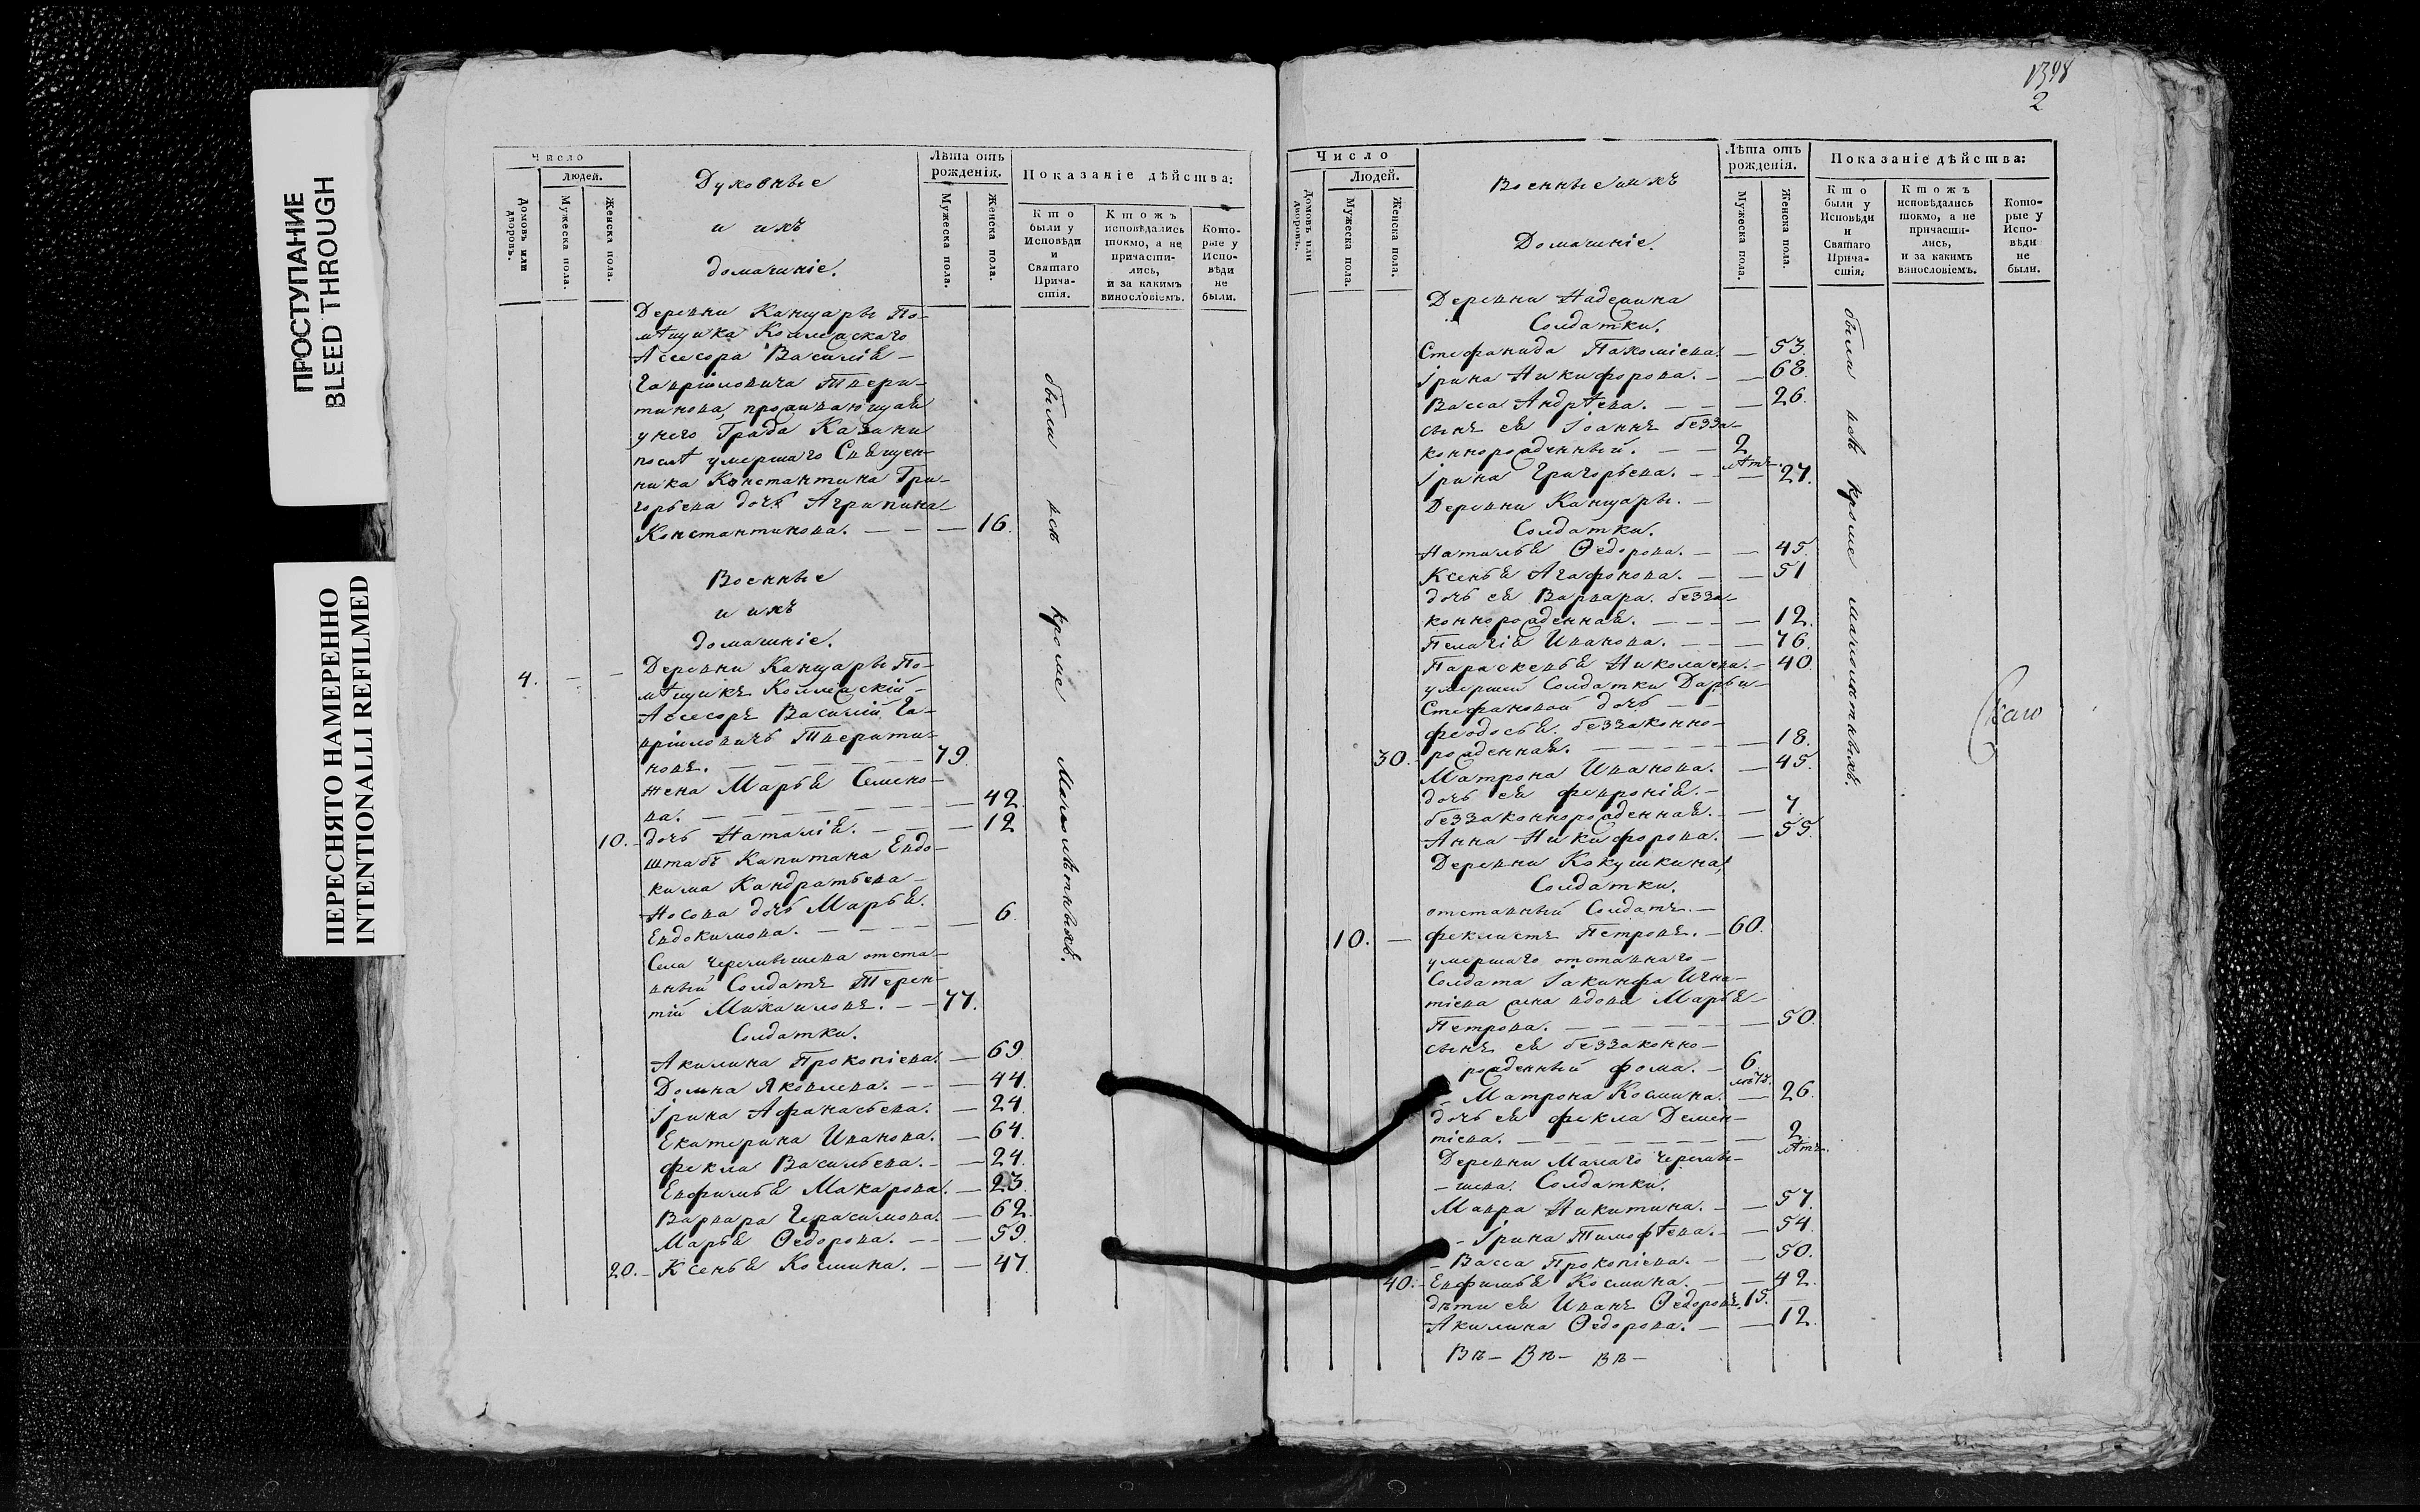 ПРОСТУПАНИЕ
BLEED THROUGH
ПЕРЕСНЯТО НАМЕРЕННО
INTENTIONALLI REFILMED
Число
Людей.
Домовъ или дворовъ.
Мужеска пола.
Женска пола.
Духовные
и ихъ
домашніе.
Лѣта отъ рожденія.
Мужеска пола.
Женска пола.
Показаніе дѣйства:
Кто были у Исповѣди и Святаго Причастія.
Ктожъ исповѣдались токмо, а не причастились, и за какимъ винословіемъ.
Которые у Исповѣди не были.
Деревни Канцары По-
мѣщика Коллежскаго
Ассесора Василія
Гавріиловича Твери-
тинова, проживающая
у него Града Казани
послѣ умершаго Священ-
ника Константина Гри-
горьева дочь Агрипина
Константинова. 16.
Военные
и ихъ
домашніе.
4. Деревни Канцары По-
мѣщикъ Коллежскій
Ассесоръ Василій Га-
вріиловичъ Тверити-
новъ. 79.
жена Марья Семено-
ва. 42.
10. дочь Наталія. 12
штабъ Капитана Евдо-
кима Кандратьева
Носова дочь Марья
Евдокимова. 6.
Села Черемышева отста-
вный Солдатъ Терен-
тій Михаиловъ. 77.
Солдатки.
Акилина Прокопіева. 69
Домна Яковлева. 44.
Ірина Афанасьева. 24.
Екатерина Иванова. 64.
Фекла Васильева. 24.
Евфимья Макарова. 23.
Варвара Герасимова. 62.
Марья Ѳедорова. 59.
20. Ксенья Космина. 47.
были всѣ кроме Малолѣтныхъ.
1398
2
Число
Людей.
Домовъ или дворовъ.
Мужеска пола.
Женска пола.
Военные и ихъ
Домашніе.
Лѣта отъ рожденія.
Мужеска пола.
Женска пола.
Показаніе дѣйства:
Кто были у Исповѣди и Святаго Причастія.
Ктожъ исповѣдались токмо, а не причастились, и за какимъ винословіемъ.
Которые у Исповѣди не были.
Деревни
Солдатки.
Стефанида Пахоміева. 53.
Ірина Никифорова. 68.
Васса Андрѣева. 26.
сынъ ея Іоаннъ безза-
коннорожденный. 2 лѣтъ.
Ірина Григорьева. 27.
Деревни Канцары.
Солдатки.
Наталья Ѳедорова. 45.
Ксенья Агафонова. 51
дочь ея Варвара безза-
коннорожденная. 12.
Пелагія Иванова. 76.
Параскевья Николаева. 40.
умершей Солдатки Дарьи
Стефановой дочь
Феодосья беззаконно-
30. рожденная. 18.
Матрона Иванова. 45.
дочь ея Февронія
беззаконнорожденная. 7.
Анна Никифорова. 55.
Деревни Кокушкина,
Солдатки.
отставный Солдатъ
10. Феклистъ Петровъ. 60.
умершаго отставнаго
Солдата Іакинфа Игна-
тіева жена вдова Марья
Петрова. 50.
сынъ ея беззаконно-
рожденный Фома. 6 лѣтъ.
Матрона Космина. 26.
дочь ея Фекла Демен-
тіева. 2 лѣтъ.
Деревни Малаго Черемы-
шева. Солдатки.
Мавра Никитина. 57.
Ірина Тимофѣева. 54.
Васса Прокопіева. 50.
40. Евфимья Космина. 42.
дѣти ея Иванъ Ѳедоровъ. 15.
Акилина Ѳедорова. 12.
были всѣ кроме малолѣтныхъ.